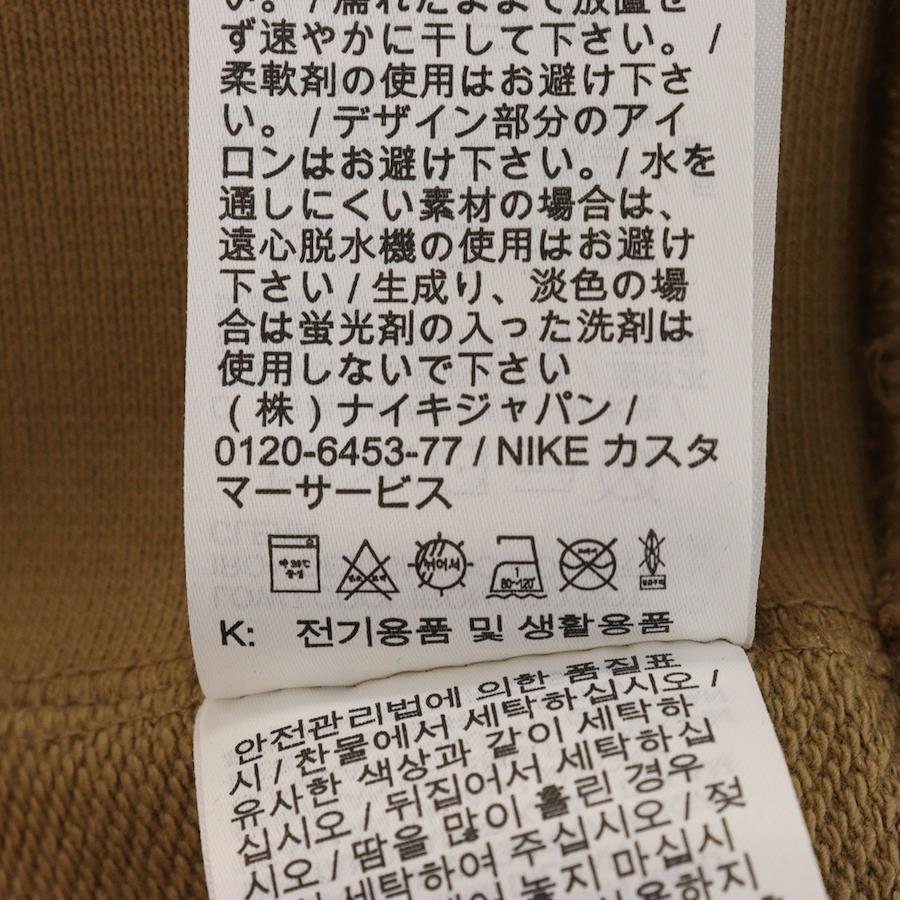 い。 / 濡れたままで放置せ
ず速やかに干して下さい。 /
柔軟剤の使用はお避け下さ
い。 / デザイン部分のアイ
ロンはお避け下さい。/ 水を
通しにくい素材の場合は、
遠心脱水機の使用はお避け
下さい / 生成り、淡色の場
合は蛍光剤の入った洗剤は
使用しないで下さい
(株) ナイキジャパン /
0120-6453-77 / NIKE カスタ
マーサービス
약 30℃
중성
뉘어서
1
80~120℃
드라이
K: 전기용품 및 생활용품
안전관리법에 의한 품질표
시 / 찬물에서 세탁하십시오 /
유사한 색상과 같이 세탁하
십시오 / 뒤집어서 세탁하십
시오 / 땀을 많이 흘린 경우
세탁하여 주십시오 / 젖
놓지 마십시
사용하지